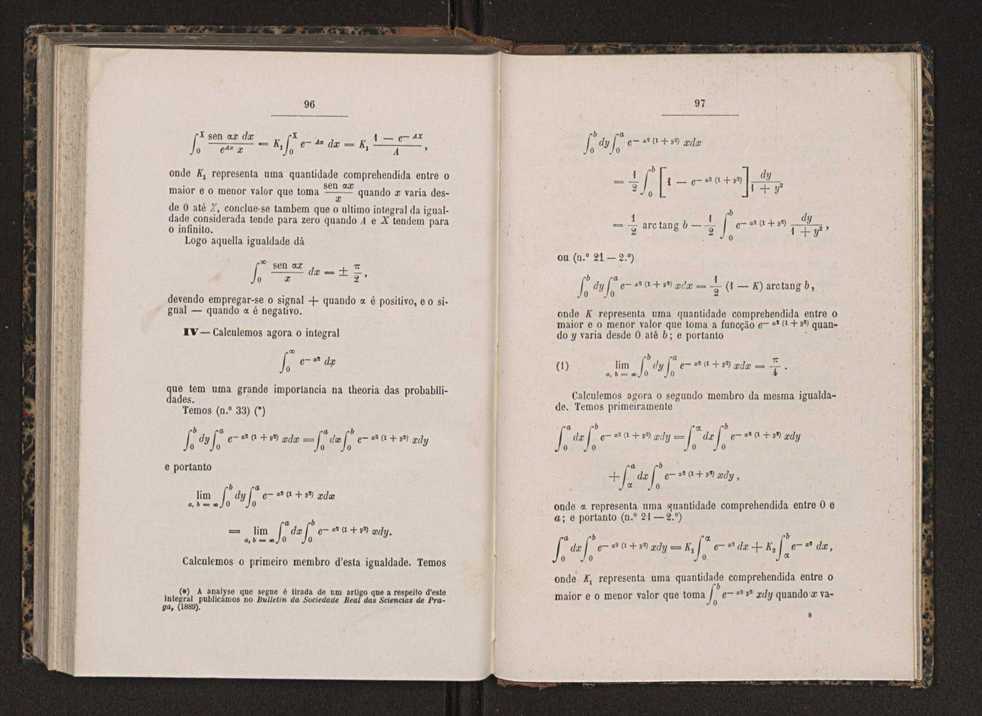 96
∫₀^X sen αx dx / e^{Ax} x = K₁ ∫₀^X e^{— Ax} dx = K₁ (1 — e^{— AX}) / A ,
onde K₁ representa uma quantidade comprehendida entre o
maior e o menor valor que toma sen αx / x quando x varia des-
de 0 até X, conclue-se tambem que o ultimo integral da igual-
dade considerada tende para zero quando A e X tendem para
o infinito.
Logo aquella igualdade dá
∫₀^∞ sen αx / x dx = ± π / 2 ,
devendo empregar-se o signal + quando α é positivo, e o si-
gnal — quando α é negativo.
IV — Calculemos agora o integral
∫₀^∞ e^{— x²} dx
que tem uma grande importancia na theoria das probabili-
dades.
Temos (n.º 33) (*)
∫₀^b dy ∫₀^a e^{— x² (1 + y²)} xdx = ∫₀^a dx ∫₀^b e^{— x² (1 + y²)} xdy
e portanto
lim_{a, b = ∞} ∫₀^b dy ∫₀^a e^{— x² (1 + y²)} xdx
= lim_{a, b = ∞} ∫₀^a dx ∫₀^b e^{— x² (1 + y²)} xdy.
Calculemos o primeiro membro d'esta igualdade. Temos
(*) A analyse que segue é tirada de um artigo que a respeito d'este
integral publicámos no Bulletin da Sociedade Real das Sciencias de Pra-
ga, (1889).
97
∫₀^b dy ∫₀^a e^{— x² (1 + y²)} xdx
= 1/2 ∫₀^b [1 — e^{— a² (1 + y²)}] dy / (1 + y²)
= 1/2 arc tang b — 1/2 ∫₀^b e^{— a² (1 + y²)} dy / (1 + y²) ,
ou (n.º 21 — 2.º)
∫₀^b dy ∫₀^a e^{— x² (1 + y²)} xdx = 1/2 (1 — K) arc tang b ,
onde K representa uma quantidade comprehendida entre o
maior e o menor valor que toma a funcção e^{— a² (1 + y²)} quan-
do y varia desde 0 até b ; e portanto
(1) lim_{a, b = ∞} ∫₀^b dy ∫₀^a e^{— x² (1 + y²)} xdx = π / 4 .
Calculemos agora o segundo membro da mesma igualda-
de. Temos primeiramente
∫₀^a dx ∫₀^b e^{— x² (1 + y²)} xdy = ∫₀^α dx ∫₀^b e^{— x² (1 + y²)} xdy
+ ∫_α^a dx ∫₀^b e^{— x² (1 + y²)} xdy ,
onde α representa uma quantidade comprehendida entre 0 e
a ; e portanto (n.º 21 — 2.º)
∫₀^a dx ∫₀^b e^{— x² (1 + y²)} xdy = K₁ ∫₀^α e^{— x²} dx + K₂ ∫_α^b e^{— x²} dx ,
onde K₁ representa uma quantidade comprehendida entre o
maior e o menor valor que toma ∫₀^b e^{— x² y²} xdy quando x va-